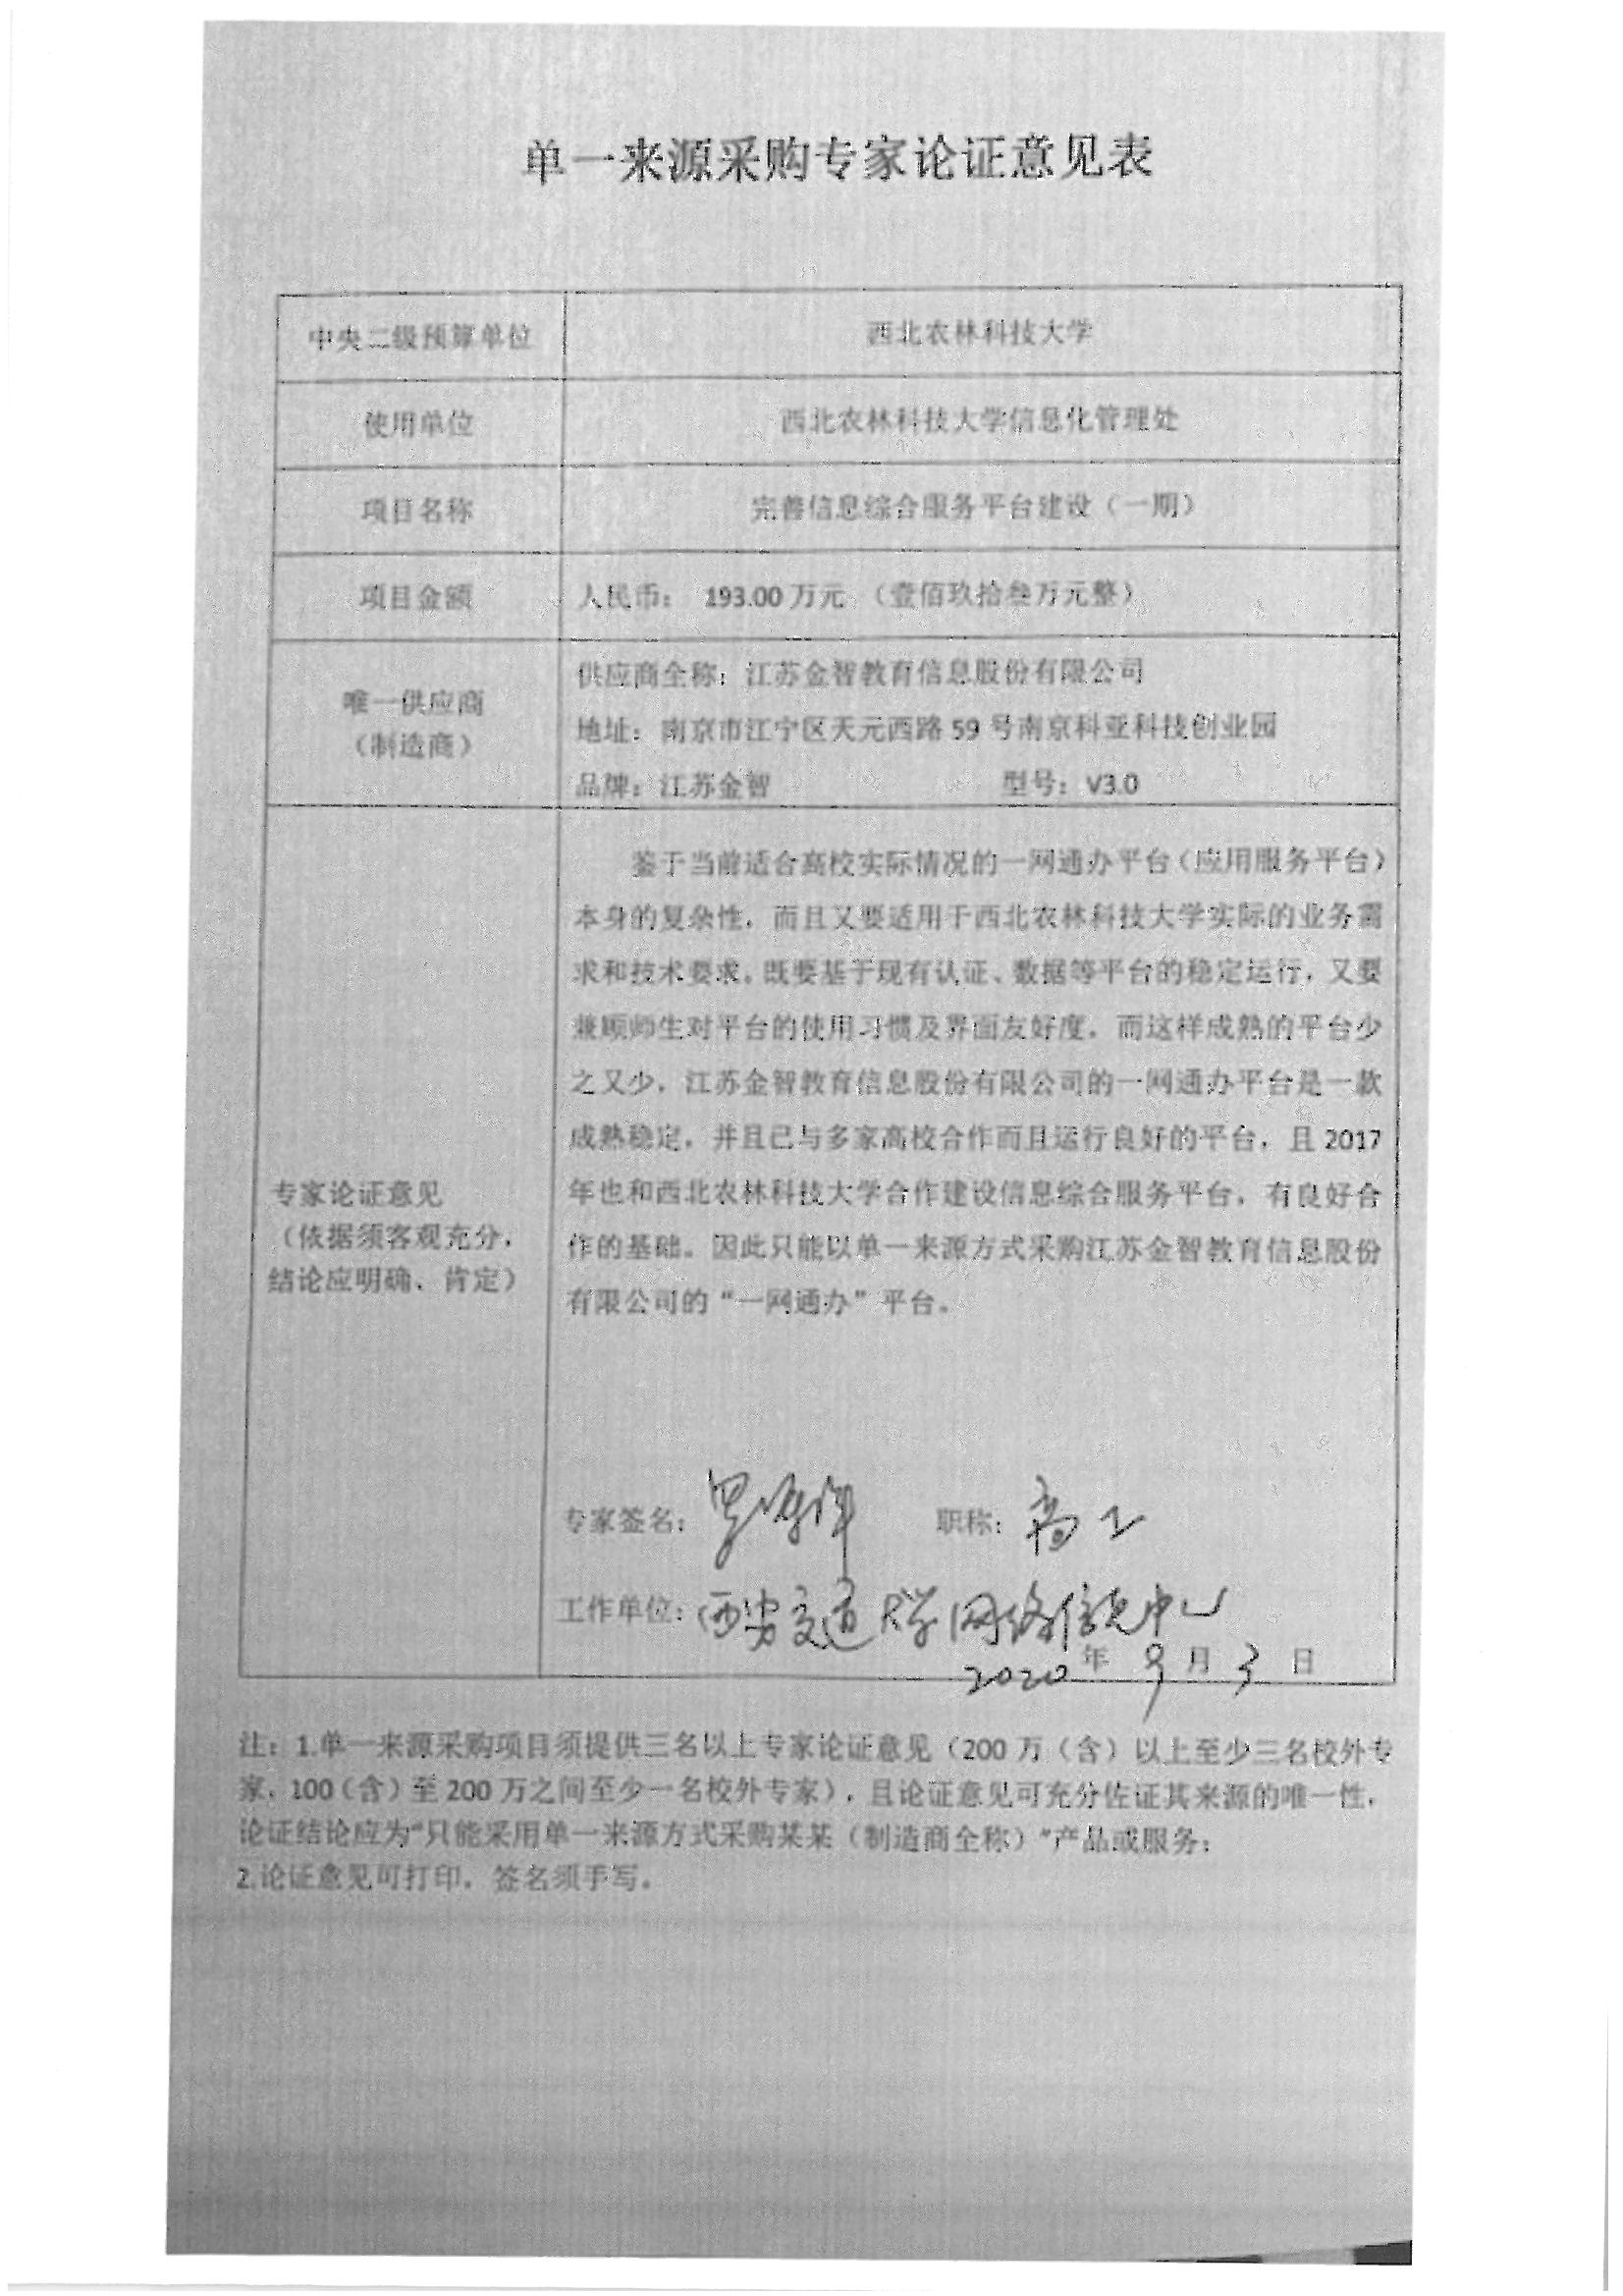 单一来源采购专家论证意见表
中央二级预算单位 西北农林科技大学
使用单位 西北农林科技大学信息化管理处
项目名称 完善信息综合服务平台建设（一期）
项目金额 人民币： 193.00 万元 （壹佰玖拾叁万元整）
唯一供应商
（制造商）
供应商全称：江苏金智教育信息股份有限公司
地址：南京市江宁区天元西路 59 号南京科亚科技创业园
品牌：江苏金智 型号：V3.0
专家论证意见
（依据须客观充分，
结论应明确、肯定）
鉴于当前适合高校实际情况的一网通办平台（应用服务平台）
本身的复杂性，而且又要适用于西北农林科技大学实际的业务需
求和技术要求。既要基于现有认证、数据等平台的稳定运行，又要
兼顾师生对平台的使用习惯及界面友好度。而这样成熟的平台少
之又少，江苏金智教育信息股份有限公司的一网通办平台是一款
成熟稳定，并且已与多家高校合作而且运行良好的平台，且 2017
年也和西北农林科技大学合作建设信息综合服务平台，有良好合
作的基础。因此只能以单一来源方式采购江苏金智教育信息股份
有限公司的“一网通办”平台。
专家签名： 职称：高工
工作单位：西安交通大学网络信息中心
2020 年 9 月 3 日
注：1.单一来源采购项目须提供三名以上专家论证意见（200 万（含）以上至少三名校外专
家，100（含）至 200 万之间至少一名校外专家），且论证意见可充分佐证其来源的唯一性，
论证结论应为“只能采用单一来源方式采购某某（制造商全称）”产品或服务；
2.论证意见可打印，签名须手写。